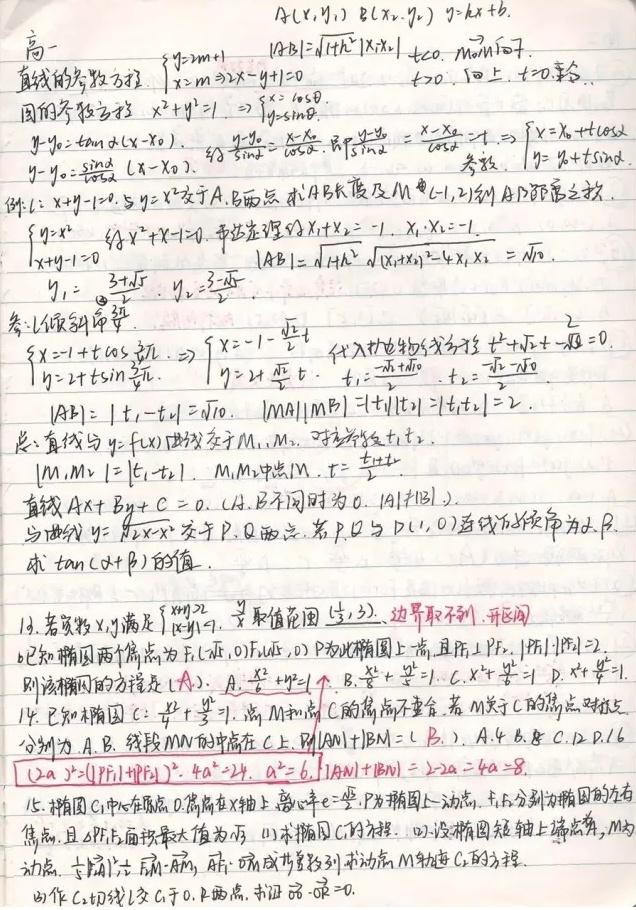 A(x₁y₁) B(x₂.y₂) y=kx+b.
高一
|AB|=√(1+k²)|x₁-x₂|
直线的参数方程. {y=2m+1 x=m ⇒2x-y+1=0
t<0.
t>0. 向上. t=0.重合.
圆的参数方程 x²+y²=1. ⇒ {x=cosθ. y=sinθ.
y-y₀=tanα(x-x₀).
y-y₀=sinα/cosα (x-x₀).
得 (y-y₀)/sinα=(x-x₀)/cosα. 即 (y-y₀)/sinα = (x-x₀)/cosα =t. ⇒ {x=x₀+tcosα y=y₀+tsinα.
参数.
例:l: x+y-1=0.与y=x²交于A.B两点 求AB长度及M (-1,2)到AB距离之积.
{y=x² x+y-1=0 得x²+x-1=0. 韦达定理得x₁+x₂=-1. x₁·x₂=-1.
y₁=(3+√5)/2 . y₂=(3-√5)/2. |AB|=√(1+k²) √((x₁+x₂)²-4x₁x₂) =√10.
参:l倾斜角 3π/4.
{x=-1+tcos 3/4π. y=2+tsin 3/4π. ⇒ {x=-1-√2/2 t y=2+√2/2 t. 代入抛物线方程 t²+√2t-2=0.
t₁=(-√2+√10)/2. t₂=(-√2-√10)/2.
|AB|=|t₁-t₂|=√10. |MA||MB|=|t₁||t₂|=|t₁t₂|=2.
总:直线与y=f(x)曲线交于M₁,M₂. 对应参数t₁t₂.
|M₁M₂|=|t₁-t₂|. M₁M₂中点M. t=(t₁+t₂)/2.
直线Ax+By+C=0. (A.B不同时为0. |A|≠|B|).
与曲线y=√(2x-x²) 交于P.Q两点.若P.Q与D(1,0)连线倾角为α.β.
求 tan(α+β)的值.
13.若实数x,y满足 取值范围 (1/3,3). 边界取不到.开区间
已知椭圆两个焦点为F₁(-√5,0)F₂(√5,0) P为此椭圆上一点,且PF₁⊥PF₂. |PF₁|·|PF₂|=2.
则该椭圆的方程是(A.). A. x²/6+y²=1 B. x²/8+y²/5=1 C. x²+y²/6=1 D. x²+y²/4=1.
14.已知椭圆C: x²/4+y²/3=1.点M和点C的焦点不重合.若M关于C的焦点对称点
分别为.A.B.线段MN的中点在C上.则|AN|+|BN|=( B.). A.4 B.8 C.12 D.16
(2a)²=(|PF₁|+|PF₂|)². 4a²=24. a²=6. |AN|+|BN|=2·2a=4a=8.
15.椭圆C₁中心在原点O.焦点在x轴上.离心率e= .P为椭圆上一动点.F₁F₂分别为椭圆的左右
焦点.且△PF₁F₂面积最大值为√3 (1)求椭圆C₁的方程. (2)设椭圆短轴上端点A,M为
动点. 成等差数列求动点M轨迹C₂的方程.
(3)作C₂切线l交C₁于Q.R两点.求证 OQ·OR=0.